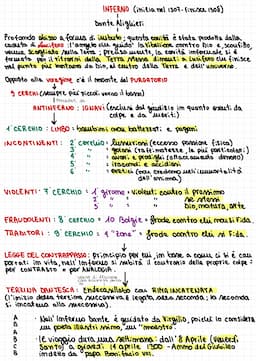 INFERNO (inizia nel 1307 - finisce 1308)
Dante Alighieri
Profondo abisso a forma di imbuto; questa cavità è stata prodotta dalla
caduta di Lucifero: l'angelo che guidò la ribellione contro Dio e, sconfitto,
venne scagliato sulla Terra;
formato per il ritirarsi della Terra stessa dinnanzi a Lucifero che finisce
nel punto più lontano da Dio, al centro della Terra e dell'universo.
Opposto alla voragine c'è il monte del PURGATORIO
9 CERCHI (sempre più piccoli verso il basso)
ANTINFERNO: IGNAVI (esclusi dal giudizio in quanto esenti da
colpe e da meriti)
1° CERCHIO: LIMBO = bambini mai battezzati e pagani
INCONTINENTI: 2° CERCHIO = lussuriosi (eccesso passione fisica)
3° " = golosi
4° " = avari e prodighi (attaccamento denaro)
5° " = iracondi e accidiosi
6° " = eretici (non credono nell'immortalità
dell'anima)
VIOLENTI: 7° CERCHIO: 1° girone = violenti contro il prossimo
2° " = " se stessi
3° " = " Dio, natura, arte
FRAUDOLENTI: 8° CERCHIO = 10 Bolgie = frode contro chi non si fida
TRADITORI: 9° CERCHIO = 4 "zone" = frode contro chi si fida
LEGGE DEL CONTRAPPASSO: principio per cui, in base a come ci si è com
portati in vita, nell'Inferno si subirà il contrario delle proprie colpe:
per CONTRASTO e per ANALOGIA
TERZINA DANTESCA: Endecasillabo con RIMA INCATENATA
(l'inizio della terzina successiva è legata alla seconda; la seconda
si incatena alla successiva).
A
B
A
B
C
B
· Nell'Inferno Dante è guidato da Virgilio, poiché lo considera
un poeta illustrissimo, un "maestro".
· Il viaggio dura una settimana: dall'8 Aprile (venerdì
Santo) a giovedì 14 aprile 1300 - Anno del Giubileo
indetto da papa Bonifacio VIII.